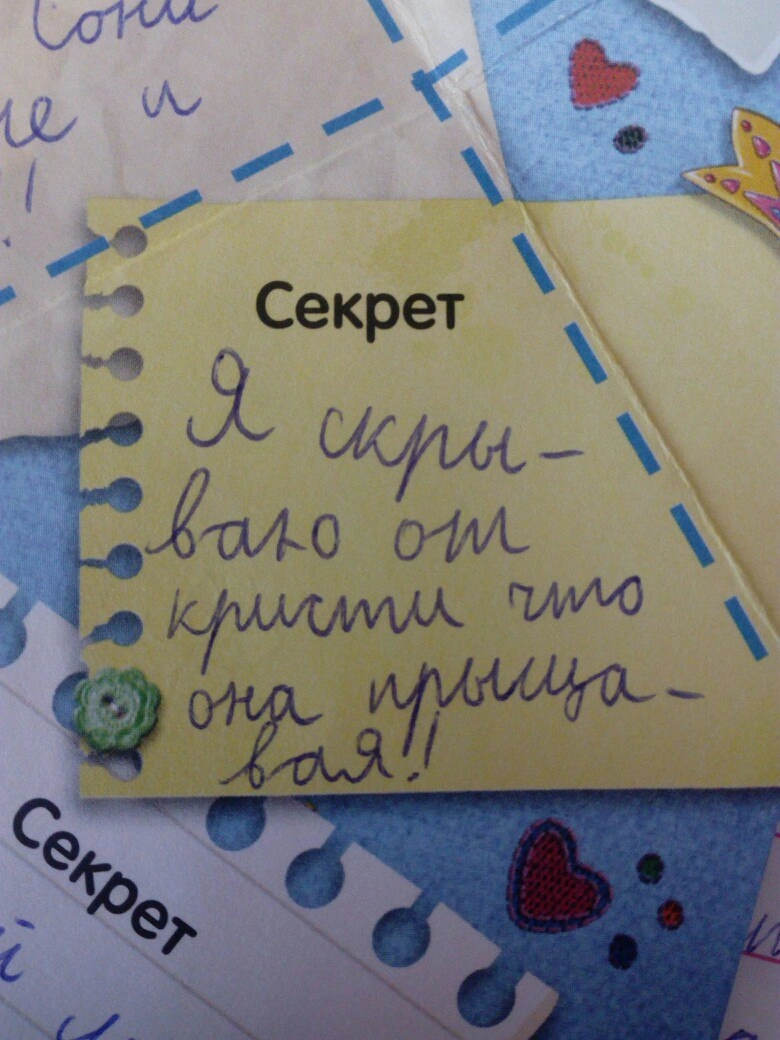 Сони
и
!
Секрет
Я скры-
ваю от
кристи что
она прыща-
вая!!
Секрет